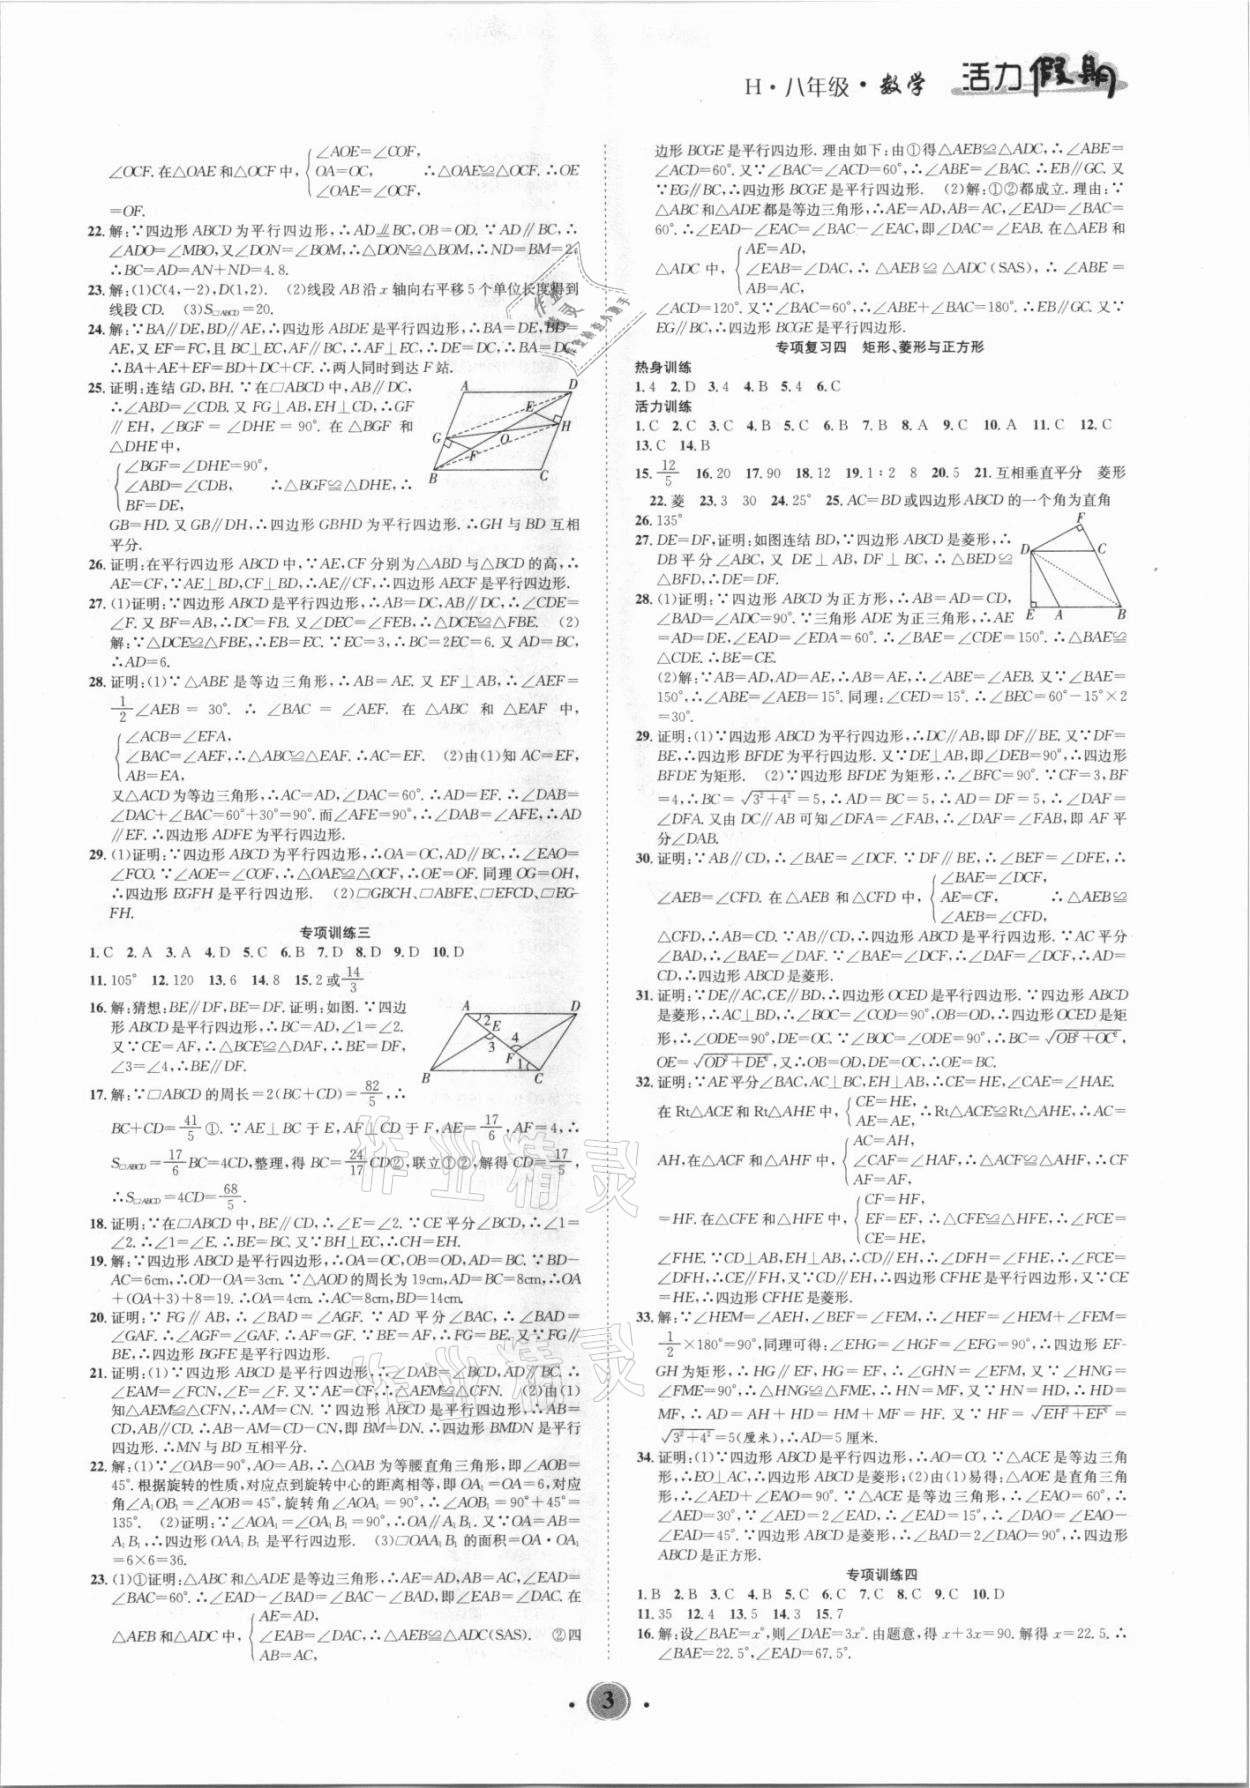 H·八年级·数学 活力假期
∠OCF.在△OAE和△OCF中,{∠AOE=∠COF, OA=OC, ∠OAE=∠OCF, ∴△OAE≌△OCF.∴OE
=OF.
22.解:∵四边形ABCD为平行四边形,∴AD∥BC,OB=OD.∵AD∥BC,∴
∠ADO=∠MBO,又∠DON=∠BOM,∴△DON≌△BOM,∴ND=BM=2,
∴BC=AD=AN+ND=4.8.
23.解:(1)C(4,-2),D(1,2). (2)线段AB沿x轴向右平移5个单位长度得到
线段CD. (3)S□ABCD=20.
24.解:∵BA∥DE,BD∥AE,∴四边形ABDE是平行四边形,∴BA=DE,BD=
AE,又EF=FC,且BC⊥EC,AF∥BC,∴AF⊥EC,∴DE=DC,∴BA=DC,
∴BA+AE+EF=BD+DC+CF.∴两人同时到达F站.
25.证明:连结GD,BH.∵在□ABCD中,AB∥DC,
∴∠ABD=∠CDB.又FG⊥AB,EH⊥CD,∴GF
∥EH,∠BGF=∠DHE=90°.在△BGF和
△DHE中,
{∠BGF=∠DHE=90°,
∠ABD=∠CDB, ∴△BGF≌△DHE,∴
BF=DE,
GB=HD.又GB∥DH,∴四边形GBHD为平行四边形.∴GH与BD互相
平分.
A D E H G O F B C
26.证明:在平行四边形ABCD中,∵AE,CF分别为△ABD与△BCD的高,∴
AE=CF,∵AE⊥BD,CF⊥BD,∴AE∥CF,∴四边形AECF是平行四边形.
27.(1)证明:∵四边形ABCD是平行四边形,∴AB=DC,AB∥DC,∴∠CDE=
∠F.又BF=AB,∴DC=FB.又∠DEC=∠FEB,∴△DCE≌△FBE. (2)
解:∵△DCE≌△FBE,∴EB=EC.∵EC=3,∴BC=2EC=6.又AD=BC,
∴AD=6.
28.证明:(1)∵△ABE是等边三角形,∴AB=AE.又EF⊥AB,∴∠AEF=
1/2∠AEB=30°.∴∠BAC=∠AEF.在△ABC和△EAF中,
{∠ACB=∠EFA,
∠BAC=∠AEF,∴△ABC≌△EAF.∴AC=EF. (2)由(1)知AC=EF,
AB=EA,
又△ACD为等边三角形,∴AC=AD,∠DAC=60°.∴AD=EF.∴∠DAB=
∠DAC+∠BAC=60°+30°=90°.而∠AFE=90°,∴∠DAB=∠AFE,∴AD
∥EF.∴四边形ADFE为平行四边形.
29.(1)证明:∵四边形ABCD为平行四边形,∴OA=OC,AD∥BC,∴∠EAO=
∠FCO.∵∠AOE=∠COF,∴△OAE≌△OCF,∴OE=OF.同理OG=OH,
∴四边形EGFH是平行四边形. (2)□GBCH、□ABFE、□EFCD、□EG-
FH.
专项训练三
1.C 2.A 3.A 4.D 5.C 6.B 7.D 8.D 9.D 10.D
11.105° 12.120 13.6 14.8 15.2或14/3
16.解:猜想:BE∥DF,BE=DF.证明:如图.∵四边
形ABCD是平行四边形,∴BC=AD,∠1=∠2.
又∵CE=AF,∴△BCE≌△DAF,∴BE=DF,
∠3=∠4,∴BE∥DF.
A D 2 E 3 4 F 1 B C
17.解:∵□ABCD的周长=2(BC+CD)=82/5,∴
BC+CD=41/5①.∵AE⊥BC于E,AF⊥CD于F,AE=17/6,AF=4,∴
S□ABCD=17/6BC=4CD,整理,得BC=24/17CD②,联立①②,解得CD=17/5,
∴S□ABCD=4CD=68/5.
18.证明:∵在□ABCD中,BE∥CD,∴∠E=∠2.∵CE平分∠BCD,∴∠1=
∠2.∴∠1=∠E.∴BE=BC.又∵BH⊥EC,∴CH=EH.
19.解:∵四边形ABCD是平行四边形,∴OA=OC,OB=OD,AD=BC.∵BD-
AC=6cm,∴OD-OA=3cm.∵△AOD的周长为19cm,AD=BC=8cm,∴OA
+(OA+3)+8=19.∴OA=4cm.∴AC=8cm,BD=14cm.
20.证明:∵FG∥AB,∴∠BAD=∠AGF.∵AD平分∠BAC,∴∠BAD=
∠GAF.∴∠AGF=∠GAF.∴AF=GF.∵BE=AF,∴FG=BE.又∵FG∥
BE,∴四边形BGFE是平行四边形.
21.证明:(1)∵四边形ABCD是平行四边形,∴∠DAB=∠BCD,AD∥BC.∴
∠EAM=∠FCN,∠E=∠F.又∵AE=CF,∴△AEM≌△CFN. (2)由(1)
知△AEM≌△CFN,∴AM=CN.∵四边形ABCD是平行四边形,∴AB=
CD,AB∥CD.∴AB-AM=CD-CN,即BM=DN.∴四边形BMDN是平行
四边形.∴MN与BD互相平分.
22.解:(1)∵∠OAB=90°,AO=AB,∴△OAB为等腰直角三角形,即∠AOB=
45°.根据旋转的性质,对应点到旋转中心的距离相等,即OA₁=OA=6,对应
角∠A₁OB₁=∠AOB=45°,旋转角∠AOA₁=90°,∴∠AOB₁=90°+45°=
135°. (2)证明:∵∠AOA₁=∠OA₁B₁=90°,∴OA∥A₁B₁.又∵OA=AB=
A₁B₁,∴四边形OAA₁B₁是平行四边形. (3)□OAA₁B₁的面积=OA·OA₁
=6×6=36.
23.(1)①证明:∵△ABC和△ADE是等边三角形,∴AE=AD,AB=AC,∠EAD=
∠BAC=60°.∴∠EAD-∠BAD=∠BAC-∠BAD,即∠EAB=∠DAC.在
△AEB和△ADC中,{AE=AD, ∠EAB=∠DAC, AB=AC, ∴△AEB≌△ADC(SAS). ②四
边形BCGE是平行四边形.理由如下:由①得△AEB≌△ADC,∴∠ABE=
∠ACD=60°.又∵∠BAC=∠ACD=60°,∴∠ABE=∠BAC.∴EB∥GC.又
∵EG∥BC,∴四边形BCGE是平行四边形. (2)解:①②都成立.理由:∵
△ABC和△ADE都是等边三角形,∴AE=AD,AB=AC,∠EAD=∠BAC=
60°.∴∠EAD-∠EAC=∠BAC-∠EAC,即∠DAC=∠EAB.在△AEB和
△ADC中,{AE=AD, ∠EAB=∠DAC, AB=AC, ∴△AEB≌△ADC(SAS),∴∠ABE=
∠ACD=120°.又∵∠BAC=60°,∴∠ABE+∠BAC=180°.∴EB∥GC.又∵
EG∥BC,∴四边形BCGE是平行四边形.
专项复习四 矩形、菱形与正方形
热身训练
1.4 2.D 3.4 4.B 5.4 6.C
活力训练
1.C 2.C 3.C 4.B 5.C 6.B 7.B 8.A 9.C 10.A 11.C 12.C
13.C 14.B
15.12/5 16.20 17.90 18.12 19.1:2 8 20.5 21.互相垂直平分 菱形
22.菱 23.3 30 24.25° 25.AC=BD或四边形ABCD的一个角为直角
26.135°
27.DE=DF,证明:如图连结BD,∵四边形ABCD是菱形,∴
DB平分∠ABC,又DE⊥AB,DF⊥BC,∴△BED≌
△BFD,∴DE=DF.
F D C E A B
28.(1)证明:∵四边形ABCD为正方形,∴AB=AD=CD,
∠BAD=∠ADC=90°.∵三角形ADE为正三角形,∴AE
=AD=DE,∠EAD=∠EDA=60°.∴∠BAE=∠CDE=150°.∴△BAE≌
△CDE.∴BE=CE.
(2)解:∵AB=AD,AD=AE,∴AB=AE,∴∠ABE=∠AEB.又∵∠BAE=
150°,∴∠ABE=∠AEB=15°.同理:∠CED=15°.∴∠BEC=60°-15°×2
=30°.
29.证明:(1)∵四边形ABCD为平行四边形,∴DC∥AB,即DF∥BE.又∵DF=
BE,∴四边形BFDE为平行四边形.又∵DE⊥AB,即∠DEB=90°,∴四边形
BFDE为矩形. (2)∵四边形BFDE为矩形,∴∠BFC=90°.∵CF=3,BF
=4,∴BC=√(3²+4²)=5,∴AD=BC=5,∴AD=DF=5,∴∠DAF=
∠DFA.又由DC∥AB可知∠DFA=∠FAB,∴∠DAF=∠FAB,即AF平
分∠DAB.
30.证明:∵AB∥CD,∴∠BAE=∠DCF.∵DF∥BE,∴∠BEF=∠DFE,∴
∠AEB=∠CFD.在△AEB和△CFD中,{∠BAE=∠DCF, AE=CF, ∠AEB=∠CFD, ∴△AEB≌
△CFD,∴AB=CD.∵AB∥CD,∴四边形ABCD是平行四边形.∵AC平分
∠BAD,∴∠BAE=∠DAF.∵∠BAE=∠DCF,∴∠DAF=∠DCF,∴AD=
CD,∴四边形ABCD是菱形.
31.证明:∵DE∥AC,CE∥BD,∴四边形OCED是平行四边形.∵四边形ABCD
是菱形,∴AC⊥BD,∴∠BOC=∠COD=90°,OB=OD,∴四边形OCED是矩
形,∴∠ODE=90°,DE=OC.∵∠BOC=∠ODE=90°,∴BC=√(OB²+OC²),
OE=√(OD²+DE²),又∴OB=OD,DE=OC,∴OE=BC.
32.证明:∵AE平分∠BAC,AC⊥BC,EH⊥AB,∴CE=HE,∠CAE=∠HAE.
在Rt△ACE和Rt△AHE中,{CE=HE, AE=AE, ∴Rt△ACE≌Rt△AHE,∴AC=
AH,在△ACF和△AHF中,{AC=AH, ∠CAF=∠HAF, AF=AF, ∴△ACF≌△AHF,∴CF
=HF.在△CFE和△HFE中,{CF=HF, EF=EF, CE=HE, ∴△CFE≌△HFE,∴∠FCE=
∠FHE.∵CD⊥AB,EH⊥AB,∴CD∥EH,∴∠DFH=∠FHE,∴∠FCE=
∠DFH,∴CE∥FH,又∵CD∥EH,∴四边形CFHE是平行四边形,又∵CE
=HE,∴四边形CFHE是菱形.
33.解:∵∠HEM=∠AEH,∠BEF=∠FEM,∴∠HEF=∠HEM+∠FEM=
1/2×180°=90°,同理可得:∠EHG=∠HGF=∠EFG=90°,∴四边形EF-
GH为矩形,∴HG∥EF,HG=EF,∴∠GHN=∠EFM,又∵∠HNG=
∠FME=90°,∴△HNG≌△FME,∴HN=MF,又∵HN=HD,∴HD=
MF,∴AD=AH+HD=HM+MF=HF.又∵HF=√(EH²+EF²)=
√(3²+4²)=5(厘米),∴AD=5厘米.
34.证明:(1)∵四边形ABCD是平行四边形,∴AO=CO.∵△ACE是等边三角
形,∴EO⊥AC,∴四边形ABCD是菱形;(2)由(1)易得:△AOE是直角三角
形,∴∠AED+∠EAO=90°.∵△ACE是等边三角形,∴∠EAO=60°,∴
∠AED=30°,∵∠AED=2∠EAD,∴∠EAD=15°,∴∠DAO=∠EAO-
∠EAD=45°.∵四边形ABCD是菱形,∴∠BAD=2∠DAO=90°,∴四边形
ABCD是正方形.
专项训练四
1.B 2.B 3.C 4.C 5.C 6.C 7.C 8.C 9.C 10.D
11.35 12.4 13.5 14.3 15.7
16.解:设∠BAE=x°,则∠DAE=3x°.由题意,得x+3x=90.解得x=22.5.∴
∠BAE=22.5°,∠EAD=67.5°.
作业精灵
作业精灵
3